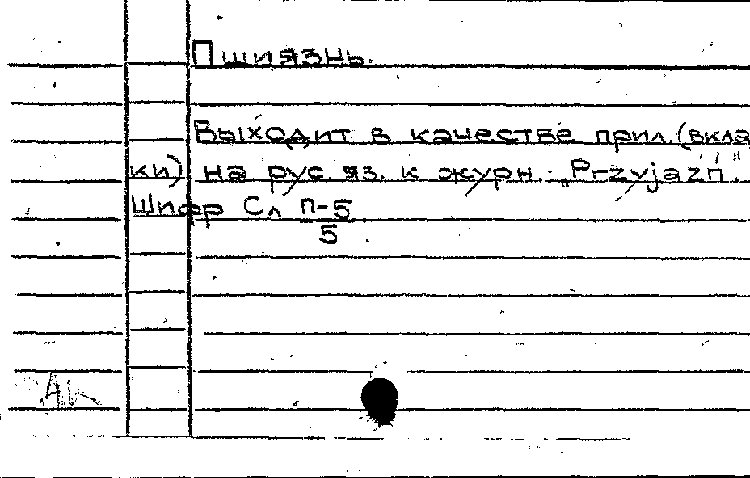 Пшиязнь.
Выходит в качестве прил. (вкла
ки) на рус яз. к журн. „Przyjaźń".
Шифр Сл П-5
5